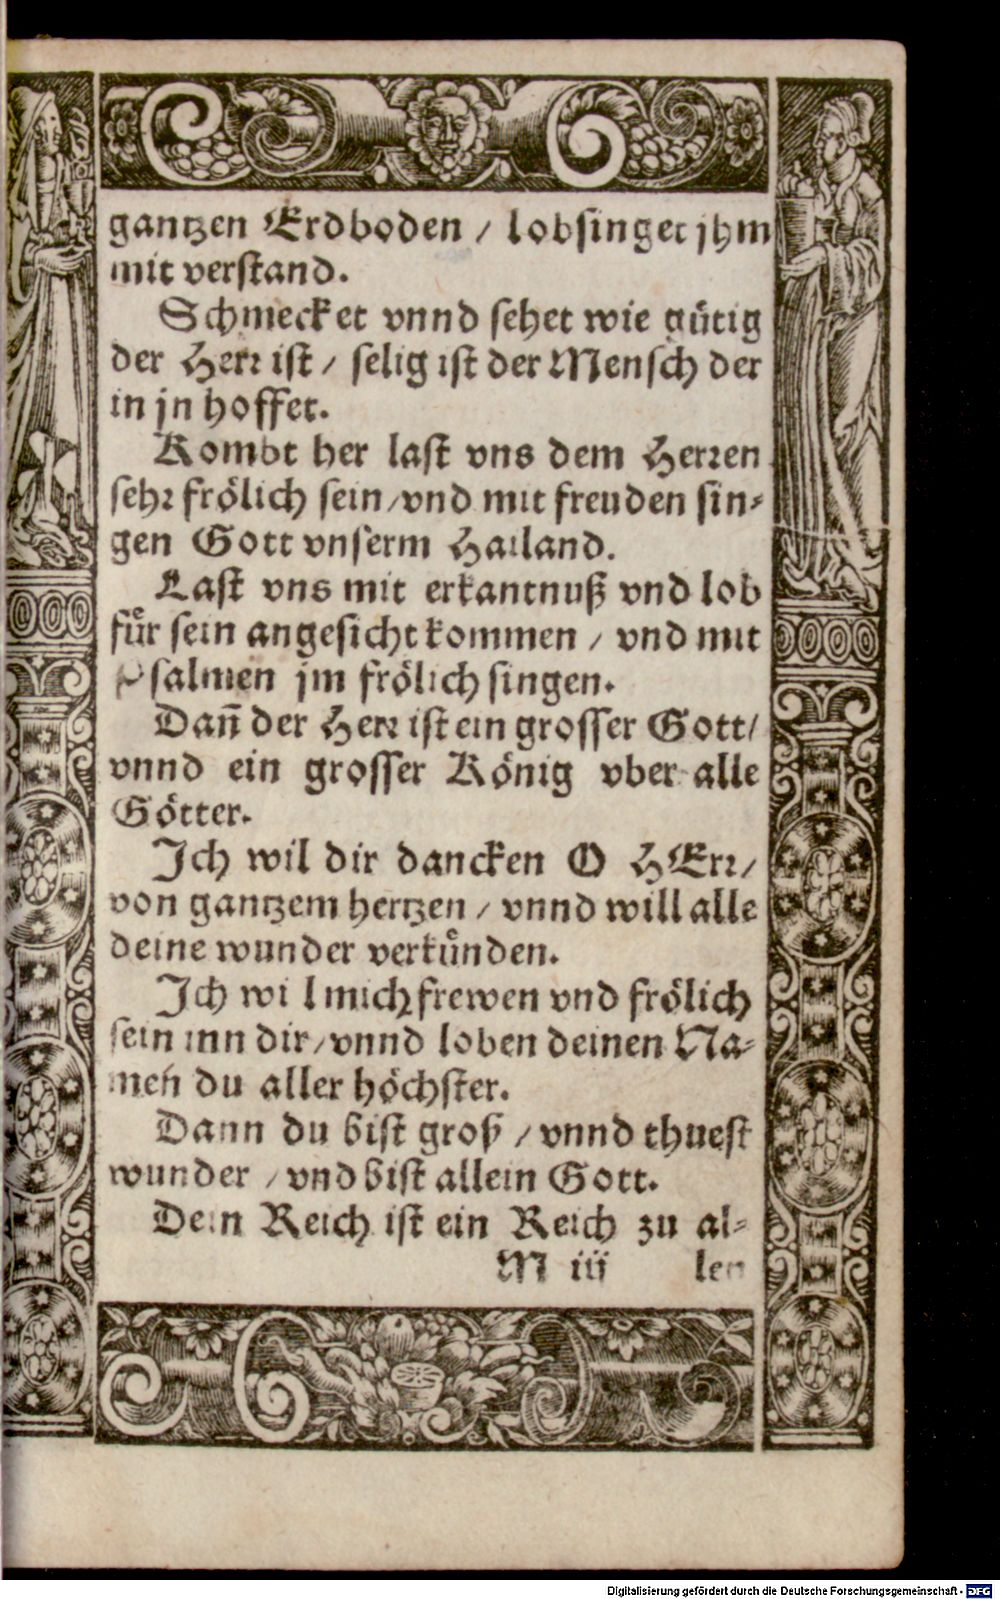 gantzen Erdboden / lobsinget jhm
mit verstand.
Schmecket vnnd sehet wie gütig
der Herr ist / selig ist der Mensch der
in jn hoffet.
Kombt her last vns dem Herren
sehr frölich sein / vnd mit freuden sin-
gen Gott vnserm Hailand.
Last vns mit erkantnuß vnd lob
für sein angesicht kommen / vnd mit
Psalmen jm frölich singen.
Dañ der Herr ist ein grosser Gott /
vnnd ein grosser König vber alle
Götter.
Ich wil dir dancken O HErr /
von gantzem hertzen / vnnd will alle
deine wunder verkünden.
Ich wil mich frewen vnd frölich
sein inn dir / vnnd loben deinen Na-
men du aller höchster.
Dann du bist groß / vnnd thuest
wunder / vnd bist allein Gott.
Dein Reich ist ein Reich zu al-
M iij len
Digitalisierung gefördert durch die Deutsche Forschungsgemeinschaft - DFG